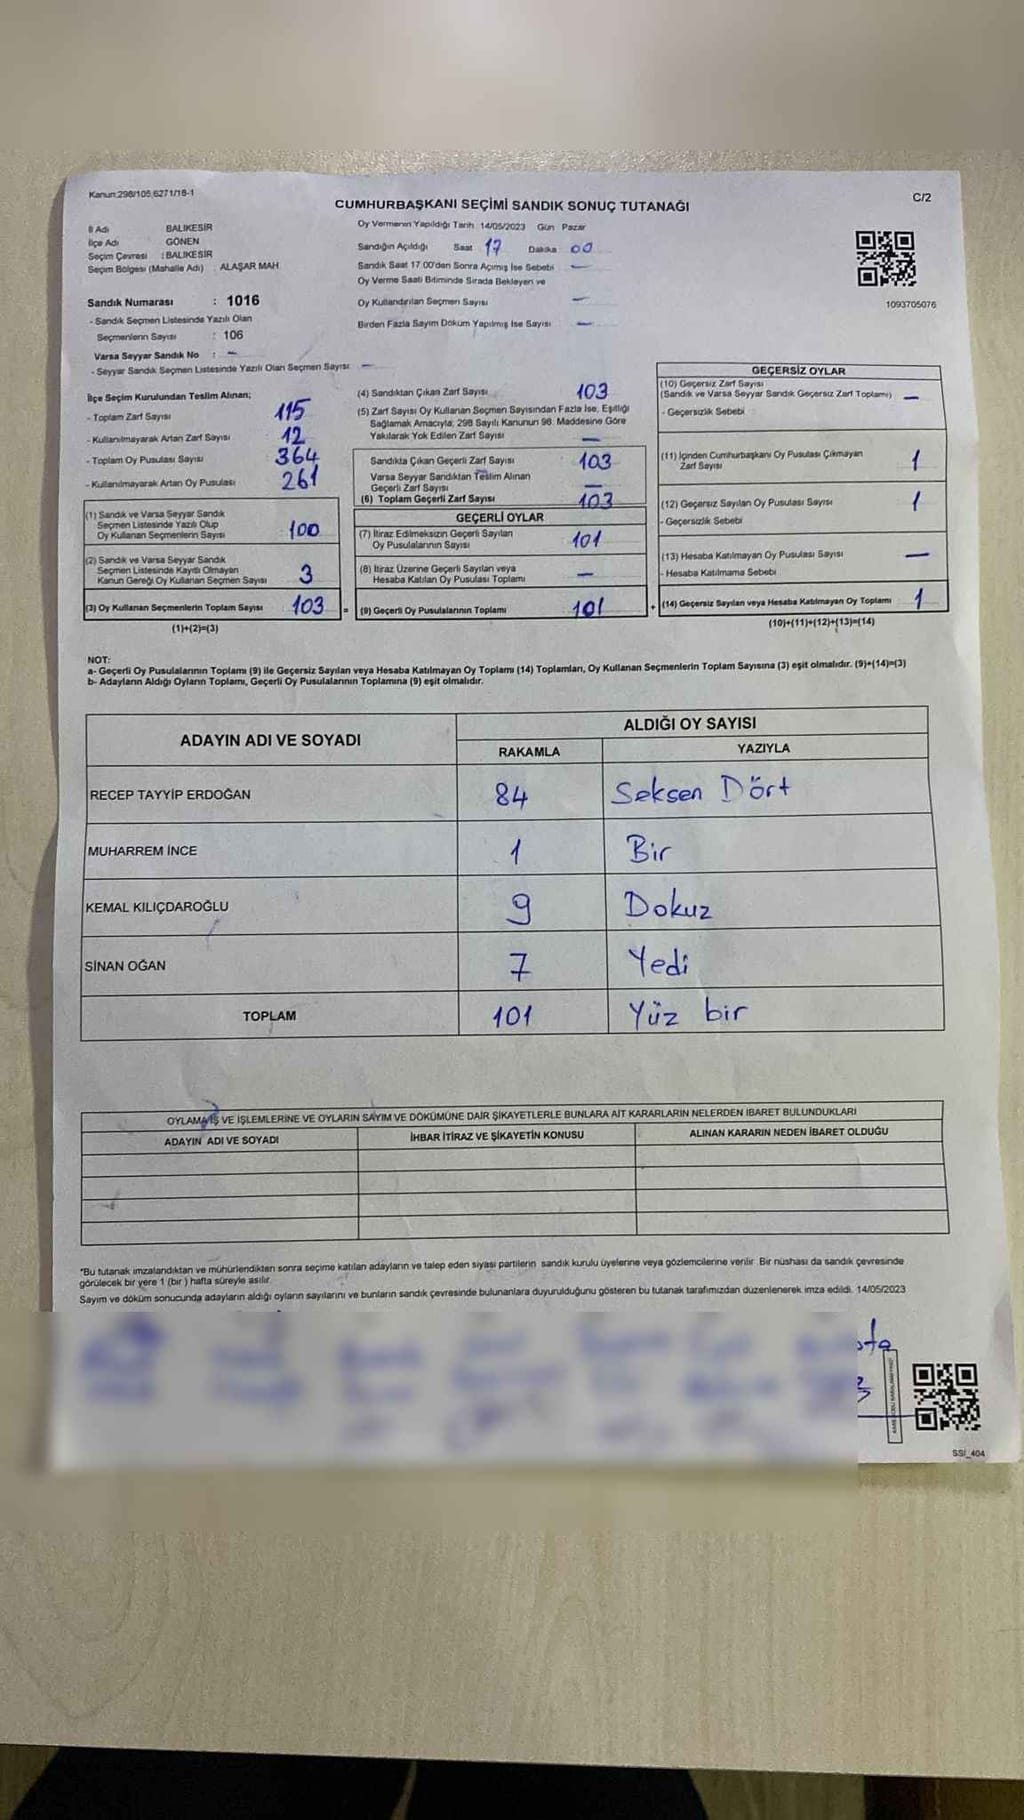 Kanun:298/105,6271/18-1
C/2
CUMHURBAŞKANI SEÇİMİ SANDIK SONUÇ TUTANAĞI
İl Adı BALIKESİR
İlçe Adı GÖNEN
Seçim Çevresi : BALIKESİR
Seçim Bölgesi (Mahalle Adı) : ALAŞAR MAH.
Sandık Numarası : 1016
- Sandık Seçmen Listesinde Yazılı Olan
Seçmenlerin Sayısı : 106
Varsa Seyyar Sandık No : -
- Seyyar Sandık Seçmen Listesinde Yazılı Olan Seçmen Sayısı -
Oy Vermenin Yapıldığı Tarih 14/05/2023 Gün Pazar
Sandığın Açıldığı Saat 17 Dakika 00
Sandık Saat 17.00'den Sonra Açılmış İse Sebebi -
Oy Verme Saati Bitiminde Sırada Bekleyen ve
Oy Kullandırılan Seçmen Sayısı -
Birden Fazla Sayım Döküm Yapılmış İse Sayısı -
1093705076
İlçe Seçim Kurulundan Teslim Alınan;
- Toplam Zarf Sayısı 115
- Kullanılmayarak Artan Zarf Sayısı 12
- Toplam Oy Pusulası Sayısı 364
- Kullanılmayarak Artan Oy Pusulası 261
(1) Sandık ve Varsa Seyyar Sandık
Seçmen Listesinde Yazılı Olup
Oy Kullanan Seçmenlerin Sayısı 100
(2) Sandık ve Varsa Seyyar Sandık
Seçmen Listesinde Kayıtlı Olmayan
Kanun Gereği Oy Kullanan Seçmen Sayısı 3
(3) Oy Kullanan Seçmenlerin Toplam Sayısı 103 =
(1)+(2)=(3)
(4) Sandıktan Çıkan Zarf Sayısı 103
(5) Zarf Sayısı Oy Kullanan Seçmen Sayısından Fazla İse, Eşitliği
Sağlamak Amacıyla, 298 Sayılı Kanunun 98. Maddesine Göre
Yakılarak Yok Edilen Zarf Sayısı -
Sandıkta Çıkan Geçerli Zarf Sayısı 103
Varsa Seyyar Sandıktan Teslim Alınan
Geçerli Zarf Sayısı -
(6) Toplam Geçerli Zarf Sayısı 103
GEÇERLİ OYLAR
(7) İtiraz Edilmeksizin Geçerli Sayılan
Oy Pusulalarının Sayısı 101
(8) İtiraz Üzerine Geçerli Sayılan veya
Hesaba Katılan Oy Pusulası Toplamı -
(9) Geçerli Oy Pusulalarının Toplamı 101 +
GEÇERSİZ OYLAR
(10) Geçersiz Zarf Sayısı
(Sandık ve Varsa Seyyar Sandık Geçersiz Zarf Toplamı) -
- Geçersizlik Sebebi
(11) İçinden Cumhurbaşkanı Oy Pusulası Çıkmayan
Zarf Sayısı 1
(12) Geçersiz Sayılan Oy Pusulası Sayısı 1
- Geçersizlik Sebebi
(13) Hesaba Katılmayan Oy Pusulası Sayısı -
- Hesaba Katılmama Sebebi
(14) Geçersiz Sayılan veya Hesaba Katılmayan Oy Toplamı 1
(10)+(11)+(12)+(13)=(14)
NOT:
a- Geçerli Oy Pusulalarının Toplamı (9) ile Geçersiz Sayılan veya Hesaba Katılmayan Oy Toplamı (14) Toplamları, Oy Kullanan Seçmenlerin Toplam Sayısına (3) eşit olmalıdır. (9)+(14)=(3)
b- Adayların Aldığı Oyların Toplamı, Geçerli Oy Pusulalarının Toplamına (9) eşit olmalıdır.
ADAYIN ADI VE SOYADI
ALDIĞI OY SAYISI
RAKAMLA YAZIYLA
RECEP TAYYİP ERDOĞAN 84 Seksen Dört
MUHARREM İNCE 1 Bir
KEMAL KILIÇDAROĞLU 9 Dokuz
SİNAN OĞAN 7 Yedi
TOPLAM 101 Yüz bir
OYLAMA İŞ VE İŞLEMLERİNE VE OYLARIN SAYIM VE DÖKÜMÜNE DAİR ŞİKAYETLERLE BUNLARA AİT KARARLARIN NELERDEN İBARET BULUNDUKLARI
ADAYIN ADI VE SOYADI İHBAR İTİRAZ VE ŞİKAYETİN KONUSU ALINAN KARARIN NEDEN İBARET OLDUĞU
*Bu tutanak imzalandıktan ve mühürlendikten sonra seçime katılan adayların ve talep eden siyasi partilerin sandık kurulu üyelerine veya gözlemcilerine verilir. Bir nüshası da sandık çevresinde
görülecek bir yere 1 (bir) hafta süreyle asılır.
Sayım ve döküm sonucunda adayların aldığı oyların sayılarını ve bunların sandık çevresinde bulunanlara duyurulduğunu gösteren bu tutanak tarafımızdan düzenlenerek imza edildi. 14/05/2023
SSI_404